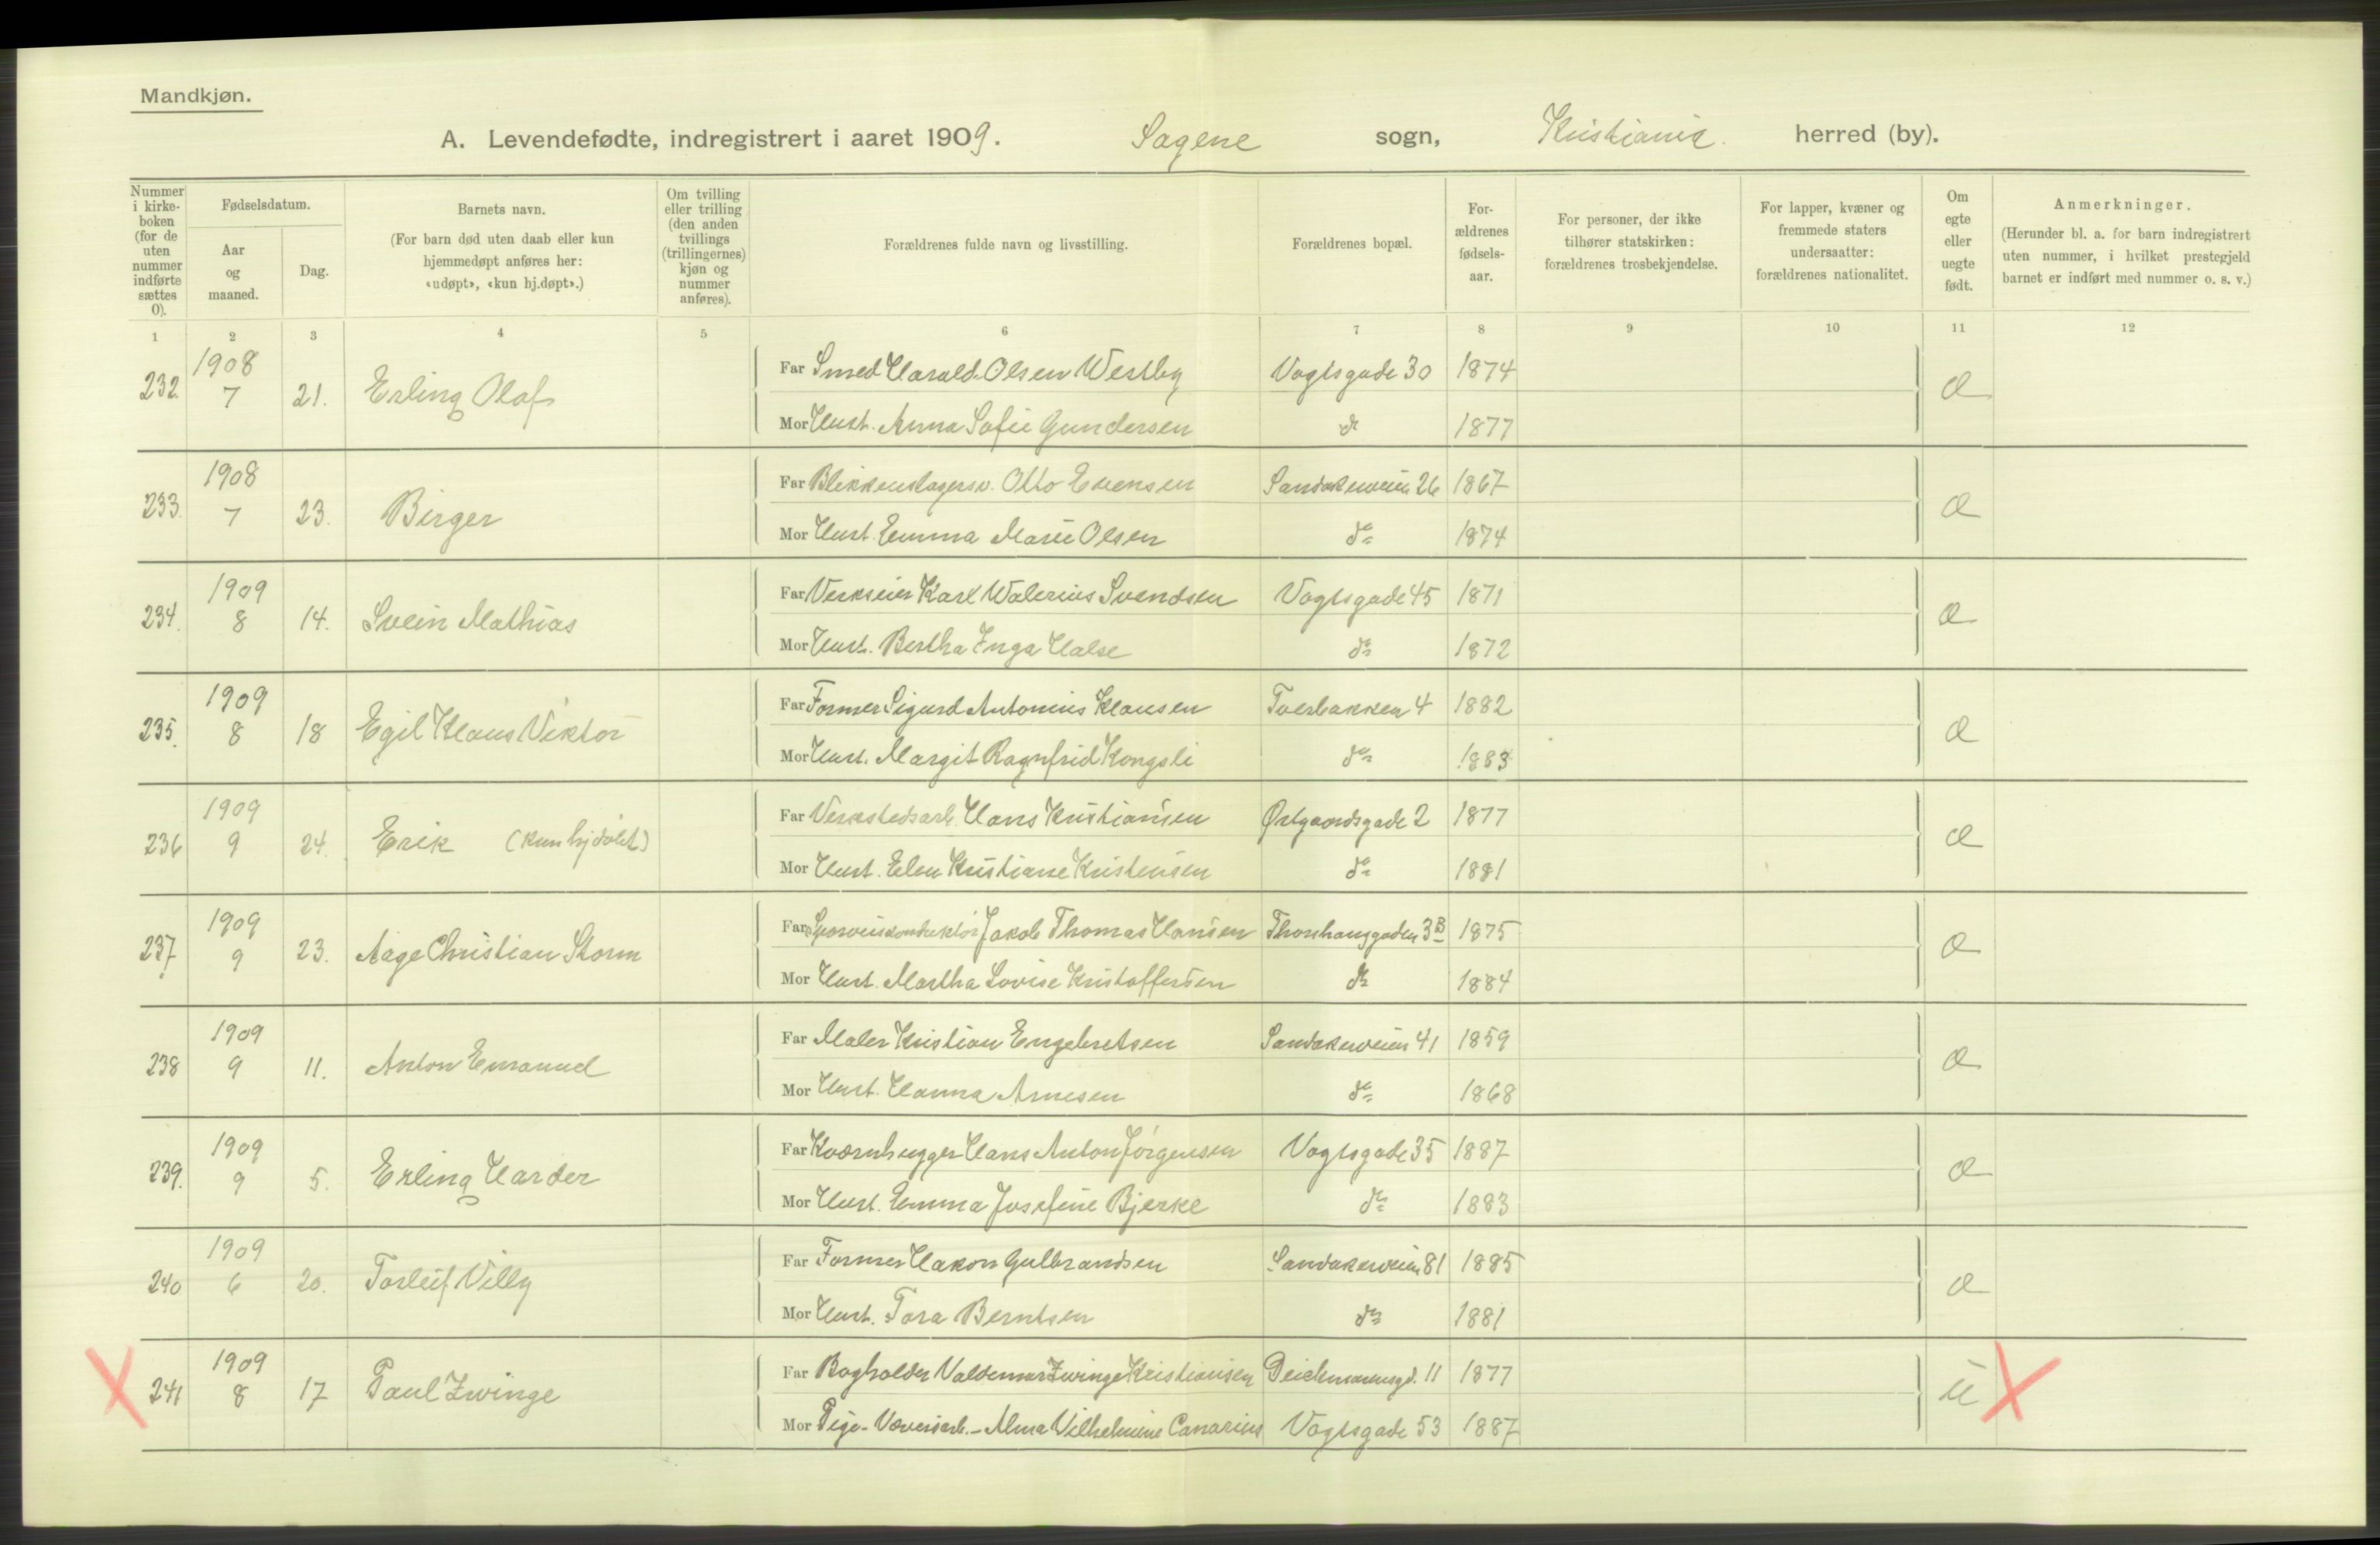 Mandkjøn.
A. Levendefødte, indregistrert i aaret 1909. Sagene sogn, Kristiania. herred (by).
Nummer i kirke- boken (for de uten nummer indførte sættes 0).
Fødselsdatum.
Aar og maaned.
Dag.
Barnets navn.
(For barn død uten daab eller kun hjemmedøpt anføres her: «udøpt», «kun hj.døpt».)
Om tvilling eller trilling (den anden tvillings (trillingernes) kjøn og nummer anføres).
Forældrenes fulde navn og livsstilling.
Forældrenes bopæl.
For- ældrenes fødsels- aar.
For personer, der ikke tilhører statskirken: forældrenes trosbekjendelse.
For lapper, kvæner og fremmede staters undersaatter: forældrenes nationalitet.
Om egte eller uegte født.
Anmerkninger.
(Herunder bl. a. for barn indregistrert uten nummer, i hvilket prestegjeld barnet er indført med nummer o. s. v.)
1 2 3 4 5 6 7 8 9 10 11 12
232. 1908 7 21. Erling Olaf
Far Smed Harald Olsen Westby Vogtsgade 30 1874
Mor Hust. Anna Sofie Gundersen do 1877
233. 1908 7 23. Birger
Far Blikkenslagersv. Otto Evensen Sandakerveien 26 1867
Mor Hust. Emma Marie Olsen do 1874
234. 1909 8 14. Svein Mathias
Far Verkseier Karl Walerius Svendsen Vogtsgade 45 1871
Mor Hust. Bertha Inga Halse do 1872
235. 1909 8 18 Egil Klaus Viktor
Far Former Sigurd Antonius Klausen Tverbakken 4 1882
Mor Hust. Margit Ragnfrid Kongsli do 1883
236 1909 9 24. Erik (kun hjdøbt)
Far Verkstedsarb. Hans Kristiansen Østgaardsgade 2 1877
Mor Hust. Elen Kristiane Kristensen do 1881
237. 1909 9 23. Aage Christian Storm
Far Sporveiskonduktør Jakob Thomas Hansen Thorshauggaden 3B 1875
Mor Hust. Martha Lovise Kristoffersen do 1884
238 1909 9 11. Anton Emanuel
Far Maler Kristian Engebretsen Sandakerveien 41 1859
Mor Hust. Hanna Arnesen do 1868
239. 1909 9 5. Erling Harder
Far Kværnhugger Hans Anton Jørgensen Vogtsgade 35 1887
Mor Hust. Emma Josefine Bjerke do 1883
240 1909 6 20. Torleif Villy
Far Former Hakon Gulbrandsen Sandakerveien 81 1885
Mor Hust. Tora Berntsen do 1881
X 241 1909 8 17 Paul Zwinge
Far Bogholder Valdemar Zwinge Kristiansen Deichmannsgd. 11 1877 u X
Mor Pige - Væveriarb. - Alma Vilhelmine Canarius Vogtsgade 53 1887